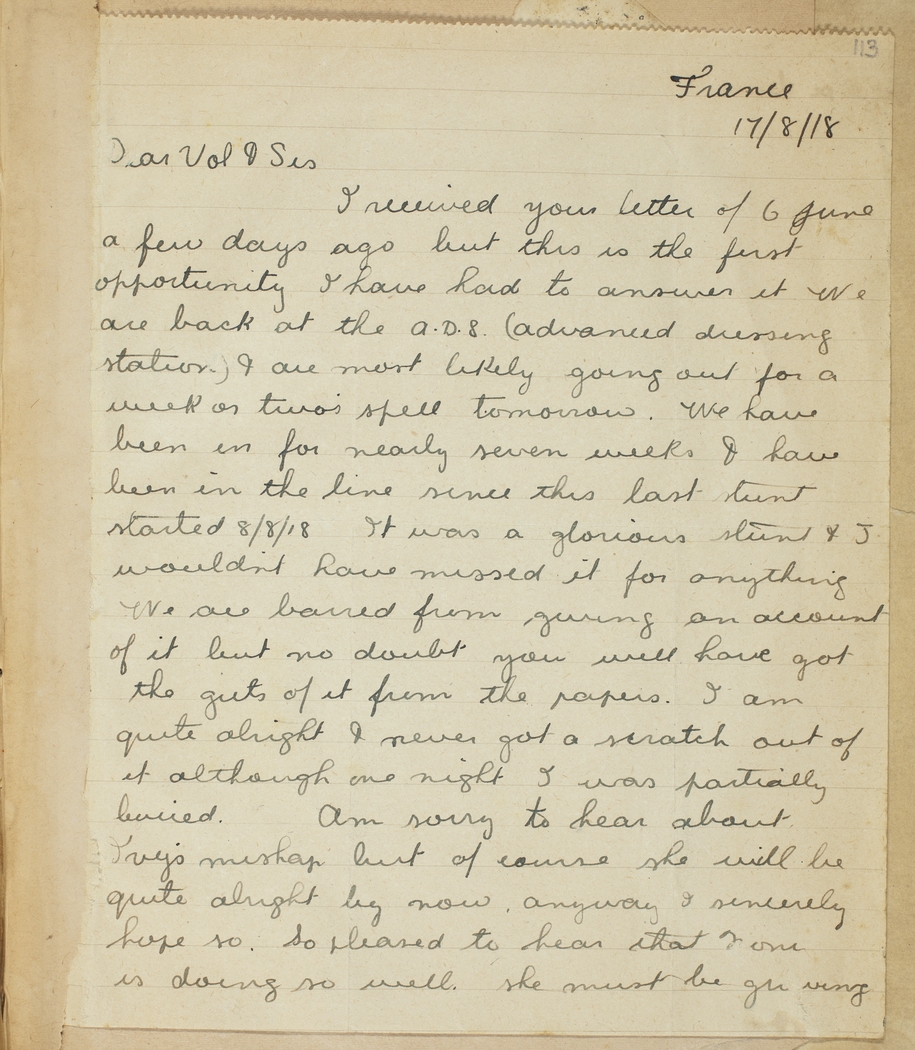 113
France
17/8/18
Dear Vol & Sis
I received your letter of 6 June
a few days ago but this is the first
opportunity I have had to answer it We
are back at the A.D.S. (advanced dressing
station.) & are most likely going out for a
week or two's spell tomorrow. We have
been in for nearly seven weeks & have
been in the line since this last stunt
started 8/8/18 It was a glorious stunt & I
wouldn't have missed it for anything
We are barred from giving an account
of it but no doubt you will have got
the guts of it from the papers. I am
quite alright & never got a scratch out of
it although one night I was partially
buried. Am sorry to hear about
Ivy's mishap but of course she will be
quite alright by now, anyway I sincerely
hope so. So pleased to hear that
is doing so well. she must be